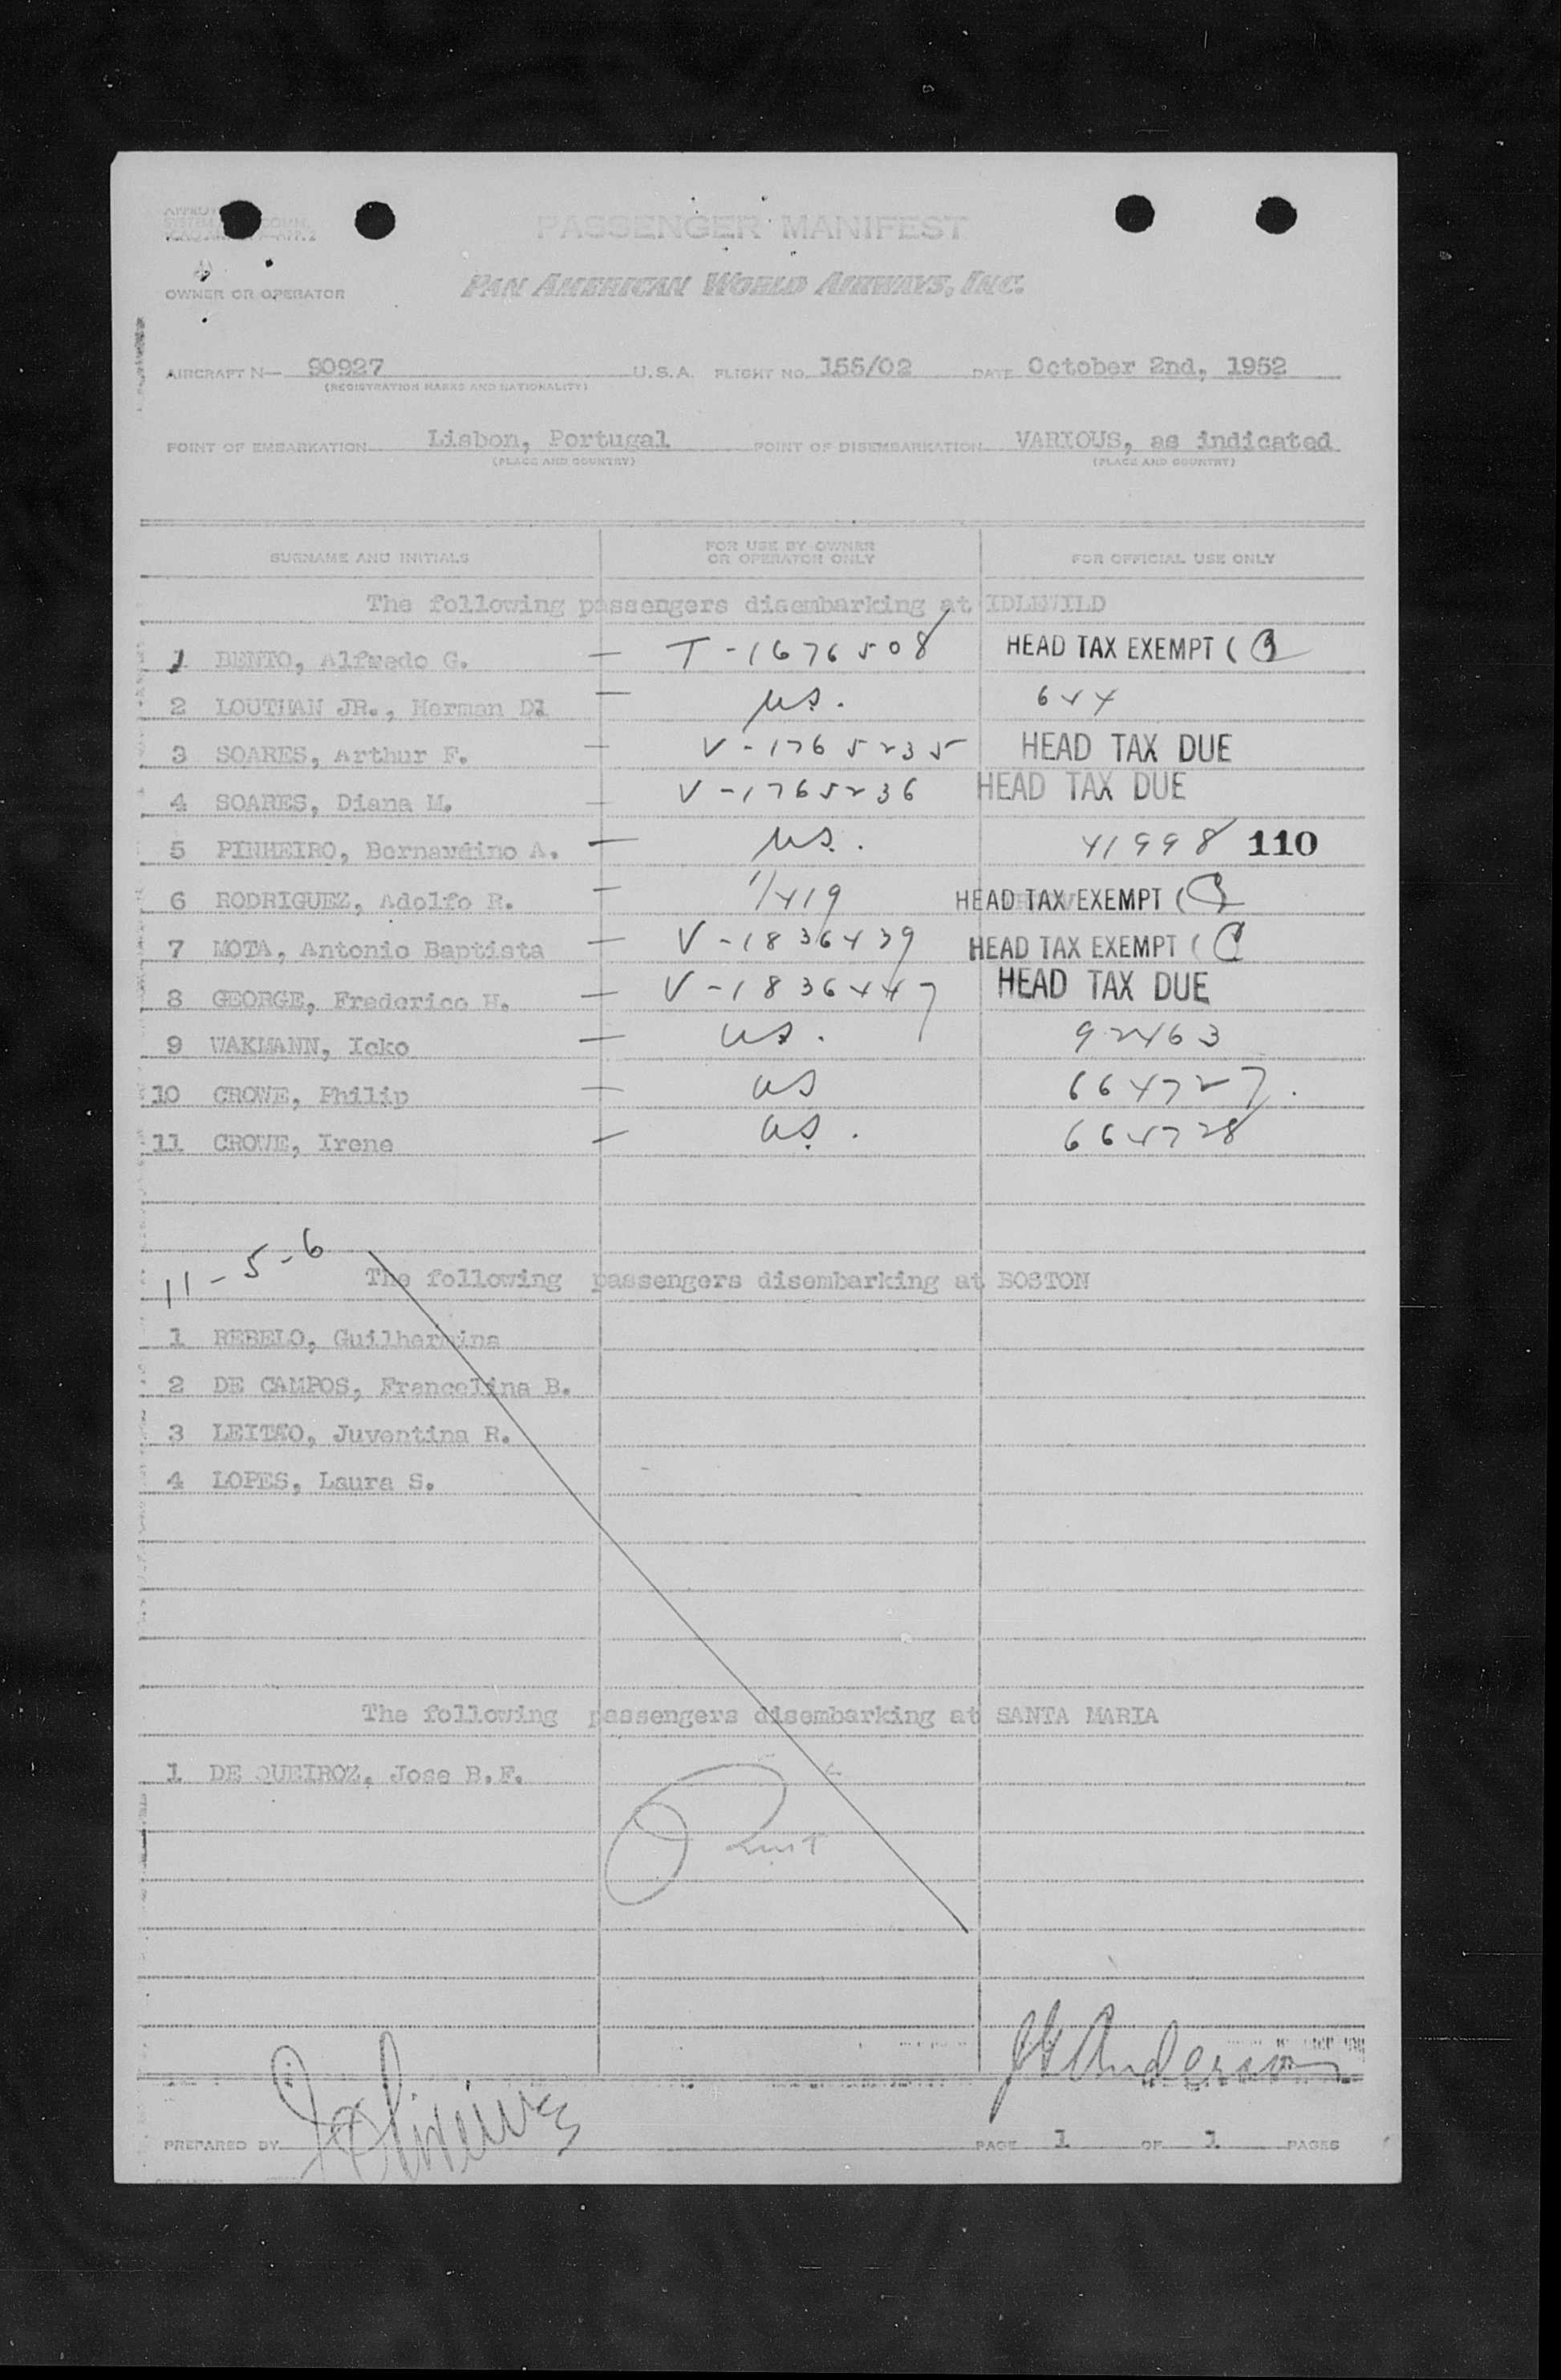 PASSENGER MANIFEST
OWNER OR OPERATOR PAN AMERICAN WORLD AIRWAYS, INC.
AIRCRAFT N— 90927 U.S.A. FLIGHT NO. 155/02 DATE October 2nd, 1952
(REGISTRATION MARKS AND NATIONALITY)
POINT OF EMBARKATION Lisbon, Portugal POINT OF DISEMBARKATION VARIOUS, as indicated
(PLACE AND COUNTRY) (PLACE AND COUNTRY)
SURNAME AND INITIALS FOR USE BY OWNER OR OPERATOR ONLY FOR OFFICIAL USE ONLY
The following passengers disembarking at IDLEWILD
1 BENTO, Alfredo G. — T-1676508 HEAD TAX EXEMPT (
2 LOUTHAN JR., Herman — US. 644
3 SOARES, Arthur F. — V-1765235 HEAD TAX DUE
4 SOARES, Diana M. — V-1765236 HEAD TAX DUE
5 PINHEIRO, Bernardino A. — US. 41998 110
6 RODRIGUEZ, Adolfo R. — HEAD TAX EXEMPT (
7 MOTA, Antonio Baptista — V-1836439 HEAD TAX EXEMPT (
8 GEORGE, Frederico H. — V-1836447 HEAD TAX DUE
9 WAKMANN, Icko — US. 92463
10 CROWE, Philip — US 664727.
11 CROWE, Irene — US. 664728
11-5-6
The following passengers disembarking at BOSTON
1 REBELO, Guilhermina
2 DE CAMPOS, Francelina B.
3 LEITAO, Juventina R.
4 LOPES, Laura S.
The following passengers disembarking at SANTA MARIA
1 DE QUEIROZ, Jose B.F.
Anderson
PREPARED BY PAGE 1 OF 1 PAGES